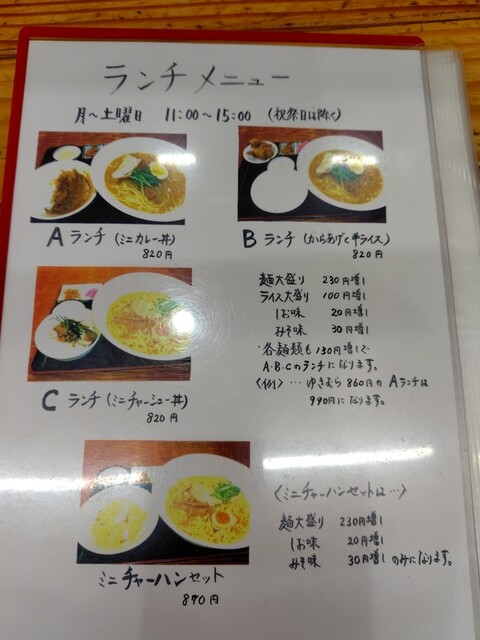 ランチメニュー
月～土曜日 11:00～15:00 (祝祭日は除く)
Aランチ(ミニカレー丼)
820円
Bランチ(からあげと半ライス)
820円
麺大盛り 230円増し
ライス大盛り 100円増し
しお味 20円増し
みそ味 30円増し
・各麺類も130円増しで
A・B・Cのランチになります。
〈例〉…ゆきむら860円のAランチは
990円になります。
Cランチ(ミニチャーシュー丼)
820円
〈ミニチャーハンセットは…〉
麺大盛り 230円増し
しお味 20円増し
みそ味 30円増し のみになります。
ミニチャーハンセット
870円